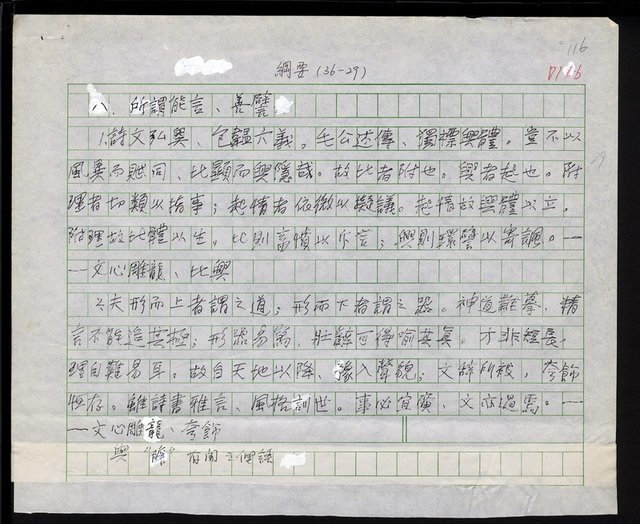 116
綱要(36-29)
八、所謂能言、善譬
1.詩文弘奧、包韞六義。毛公述傳、獨標興體。豈不以
風異而賦同、比顯而興隱哉。故比者附也。興者起也。附
理者切類以指事；起情者依微以擬議。起情故興體以立、
附理故比體以生。比則畜憤以斥言；興則環譬以寄諷。—
—文心雕龍、比興
2.夫形而上者謂之道；形而下者謂之器。神道難摹、精
言不能追其極；形器易寫、壯辭可得喻其真。才非短長、
理自難易耳。故自天地以降、豫入聲貌；文辭所被、夸飾
恆存。雖詩書雅言、風格訓世。事必宜廣、文亦過焉。—
—文心雕龍、夸飾
與"譬"有關之俚語